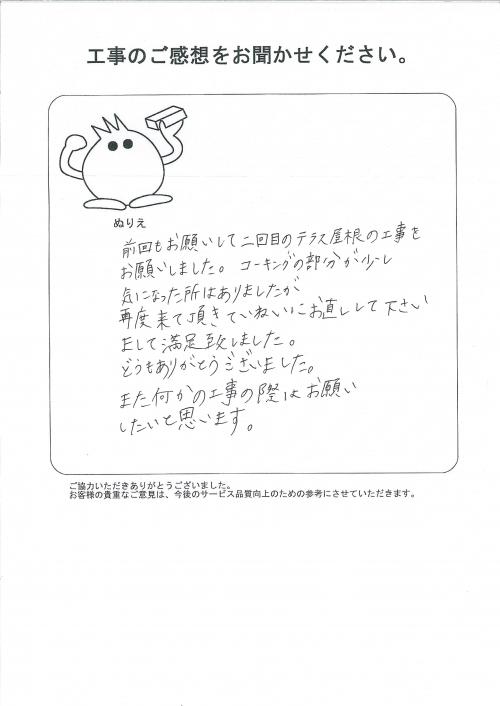 工事のご感想をお聞かせください。
ぬりえ
前回もお願いして二回目のテラス屋根の工事を
お願いしました。コーキングの部分が少し
気になった所はありましたが
再度来て頂きていねいにお直しして下さい
まして満足致しました。
どうもありがとうございました。
また何かの工事の際はお願い
したいと思います。
ご協力いただきありがとうございました。
お客様の貴重なご意見は、今後のサービス品質向上のための参考にさせていただきます。